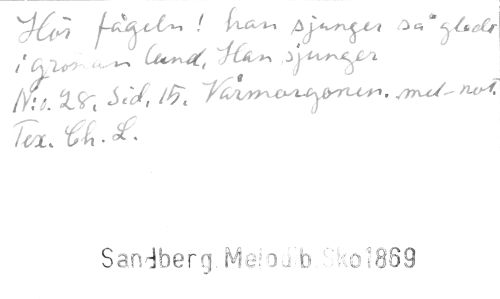 Hör fågeln! han sjunger så glad
i grönan lund, Han sjunger
N:o. 28. Sid. 15. Vårmorgonen. mel-not.
Tex. Ch. L.
Sandberg. Melodib. Sko 1869